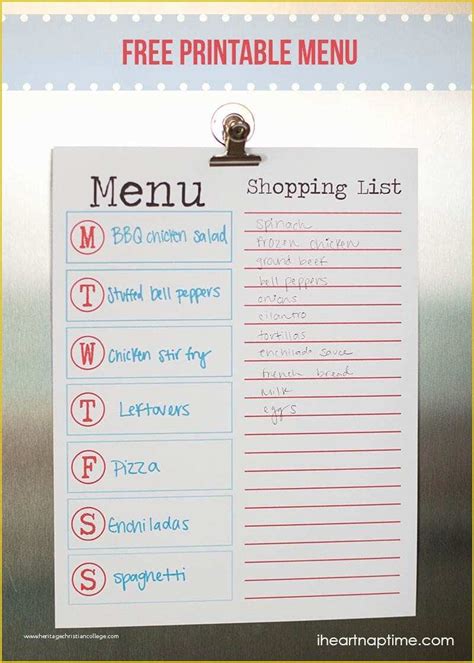 FREE PRINTABLE MENU
Menu
M BBQ chicken salad
T Stuffed bell peppers
W Chicken stir fry
T Leftovers
F Pizza
S Enchiladas
S spaghetti
Shopping List
spinach
frozen chicken
ground beef
bell peppers
onions
cilantro
tortillas
enchilada sauce
french bread
milk
eggs
www.heritagechristiancollege.com
iheartnaptime.com